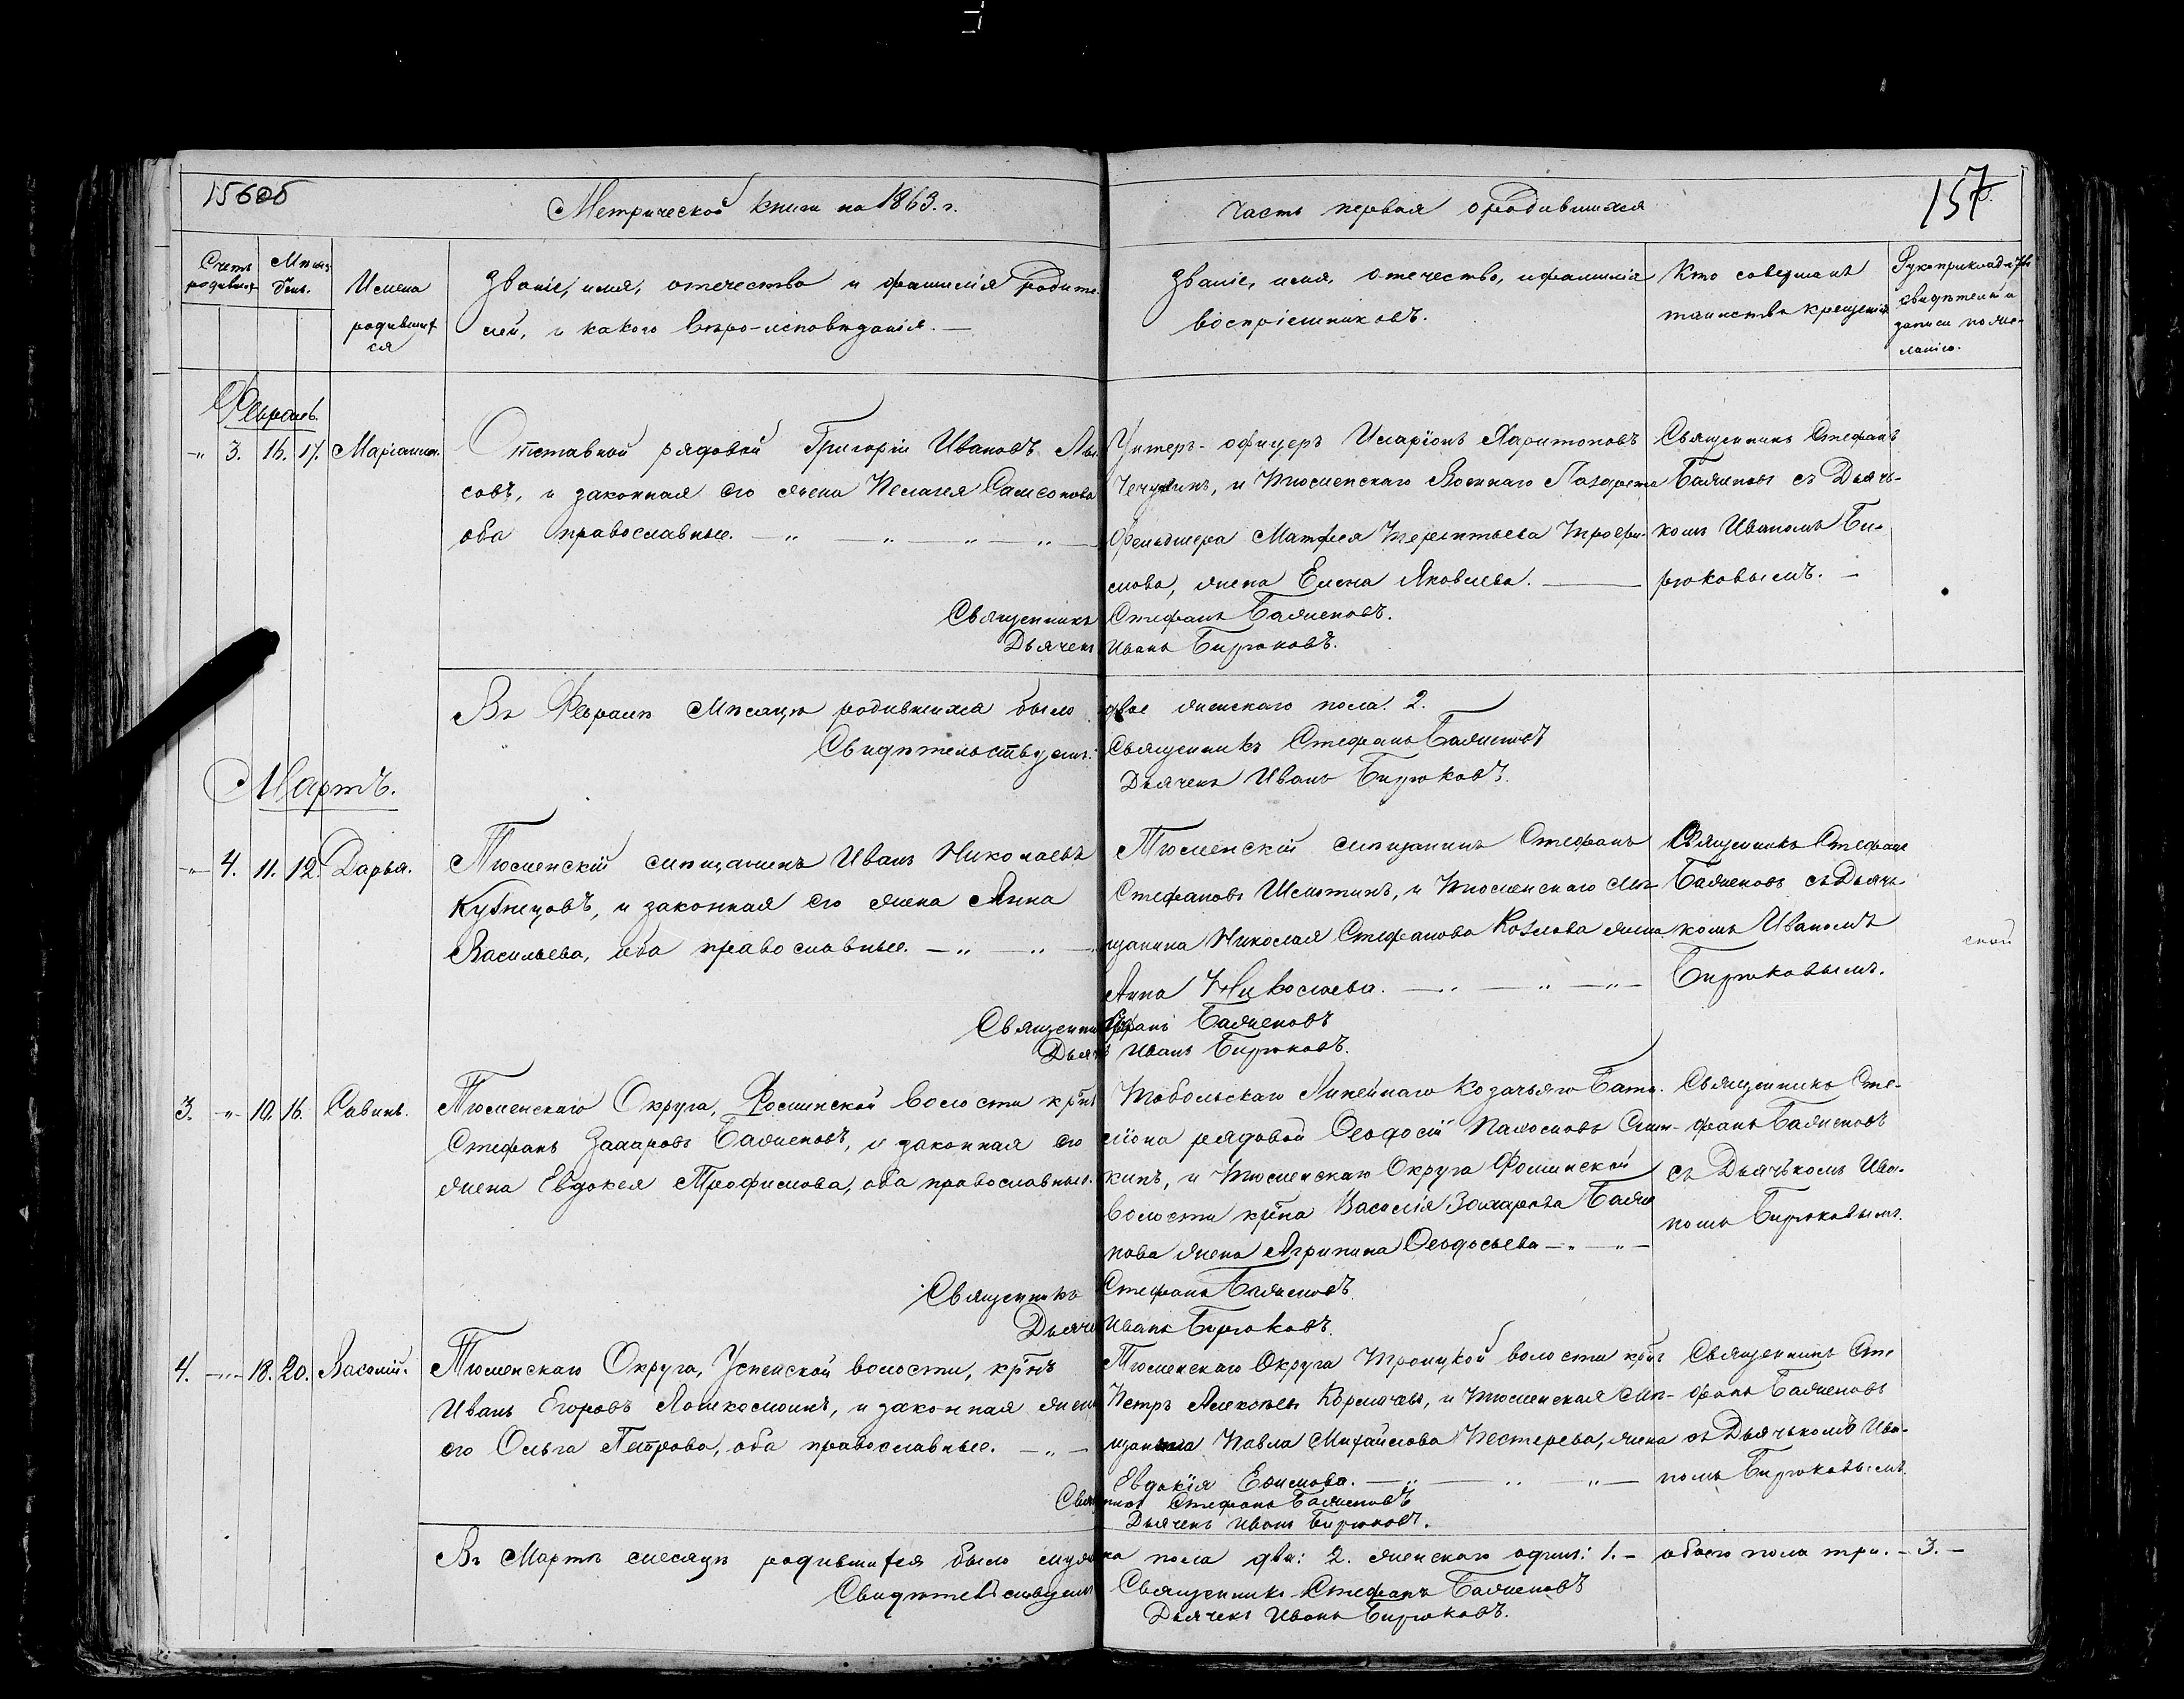 156об
Метрической книги на 1863. г.
Часть первая о родившихся
157
Счетъ родившихся
Мѣсяц. День.
Имена родившихся
Званіе, имя, отечество и фамилія Родителей, и какого вѣро-исповѣданія. —
Званіе, имя, отечество, и фамилія воспріемниковъ.
Кто совершалъ таинство крещенія
Рукоприкладство свидѣтелей и записи по желанію.
Февраль
-„ 3. 16. 17. Маріанна.
Отставной рядовой Григорій Ивановъ
совъ, и законная его жена Пелагея Самсонова
оба православные. — „ — „ — „ — „ —
Унтеръ-офицеръ Иларіонъ Харитоновъ
и Тюменскаго Военнаго Лазарета
Фельдшера Матфея Терентьева Трофи-
мова, жена Елена Яковлева. —
Священникъ Стефанъ
Баженовъ съ Дьячь-
комъ Иваномъ Би-
рюковымъ. —
Священникъ Стефанъ Баженовъ.
Дьячекъ Иванъ Бирюковъ.
Въ Февралѣ Мѣсяцѣ родившихся было двое женскаго пола. 2.
Свидѣтельствуемъ: Священникъ Стефанъ Баженовъ
Дьячекъ Иванъ Бирюковъ.
Мартъ.
-„- 4. 11. 12. Дарья.
Тюменскій мѣщанинъ Иванъ Николаевъ
Кузнецовъ, и законная его жена Анна
Васильева, оба православные. — „ — „ — „
Тюменскій мѣщанинъ Стефанъ
Стефановъ и Тюменскаго мѣ-
щанина Николая Стефанова Козлова жена
Анна Николаева. — „ — „ — „ —
Священникъ Стефанъ
Баженовъ съ Дьячь-
комъ Иваномъ
Бирюковымъ.
ской
Священникъ Стефанъ Баженовъ
Дьячекъ Иванъ Бирюковъ.
3. -„- 10. 16. Савинъ.
Тюменскаго Округа, Фоминской Волости кр̃нъ
Стефанъ Захаровъ Баженовъ, и законная его
жена Евдокея Трофимова, оба православные.
Тобольскаго Линейнаго Козачьяго Бата-
ліона рядовой Ѳеодосій
кинъ, и Тюменскаго Округа Фоминской
волости кр̃на Василія Захарова Баже
нова жена Агрипина Ѳеодосьева — „ — „ —
Священникъ Сте-
фанъ Баженовъ
съ Дьячькомъ Ива-
номъ Бирюковымъ.
Священникъ Стефанъ Баженовъ
Дьячекъ Иванъ Бирюковъ.
4. -„- 18. 20. Василій.
Тюменскаго Округа, Успенской волости, кр̃нъ
Иванъ Егоровъ и законная жена
его Ольга Петрова, оба православные. — „ —
Тюменскаго Округа Троицкой волости кр̃нъ
Петръ Алексѣевъ и Тюменская мѣ-
щанина Павла Михайлова Нестерева, жена
Евдокія Ефимова. — „ — „ — „ —
Священникъ Сте
фанъ Баженовъ
съ Дьячькомъ Ива-
номъ Бирюковымъ.
Священникъ Стефанъ Баженовъ
Дьячекъ Иванъ Бирюковъ.
Въ Мартѣ месяцѣ родившихся было мужска пола два: 2. женскаго одинъ: 1. — обоего пола три. — 3. —
Свидѣтельствуемъ Священникъ Стефанъ Баженовъ
Дьячекъ Иванъ Бирюковъ.